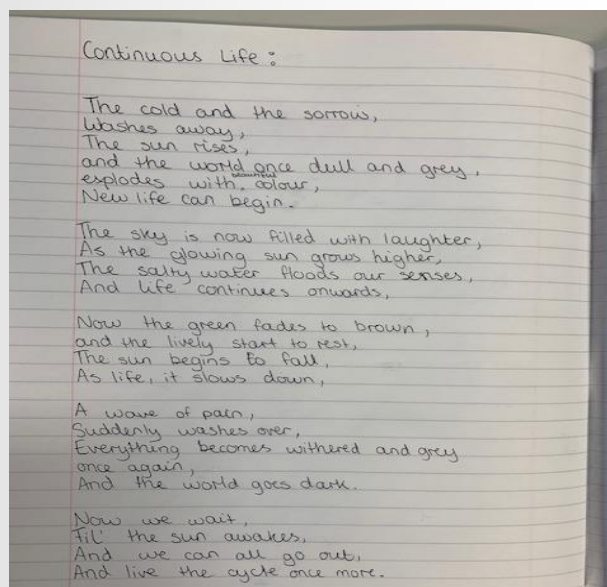 Continuous Life:
The cold and the sorrow,
Washes away,
The sun rises,
and the world once dull and grey,
esplodes with beautiful colour,
New life can begin.
The sky is now filled with laughter,
As the glowing sun grows higher,
The salty water floods our senses,
And life continues onwards,
Now the green fades to brown,
and the lively start to rest,
The sun begins to fall,
As life, it slows down,
A wave of pain,
Suddenly washes over,
Everything becomes withered and grey
once again,
And the world goes dark.
Now we wait,
Til' the sun awakes,
And we can all go out,
And live the cycle once more.